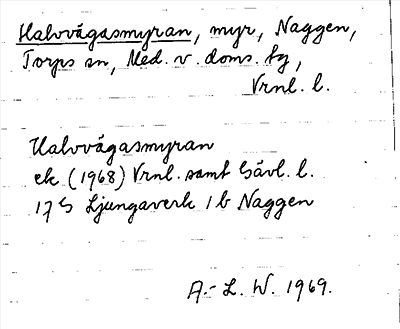 Halvvägasmyran, myr, Naggen,
Torps sn, Med. v. doms. tg,
Vrnl. l.
Halvvägasmyran
ek (1968) Vrnl. samt Gävl. l.
17 G Ljungaverk 1 b Naggen
A.-L. W. 1969.